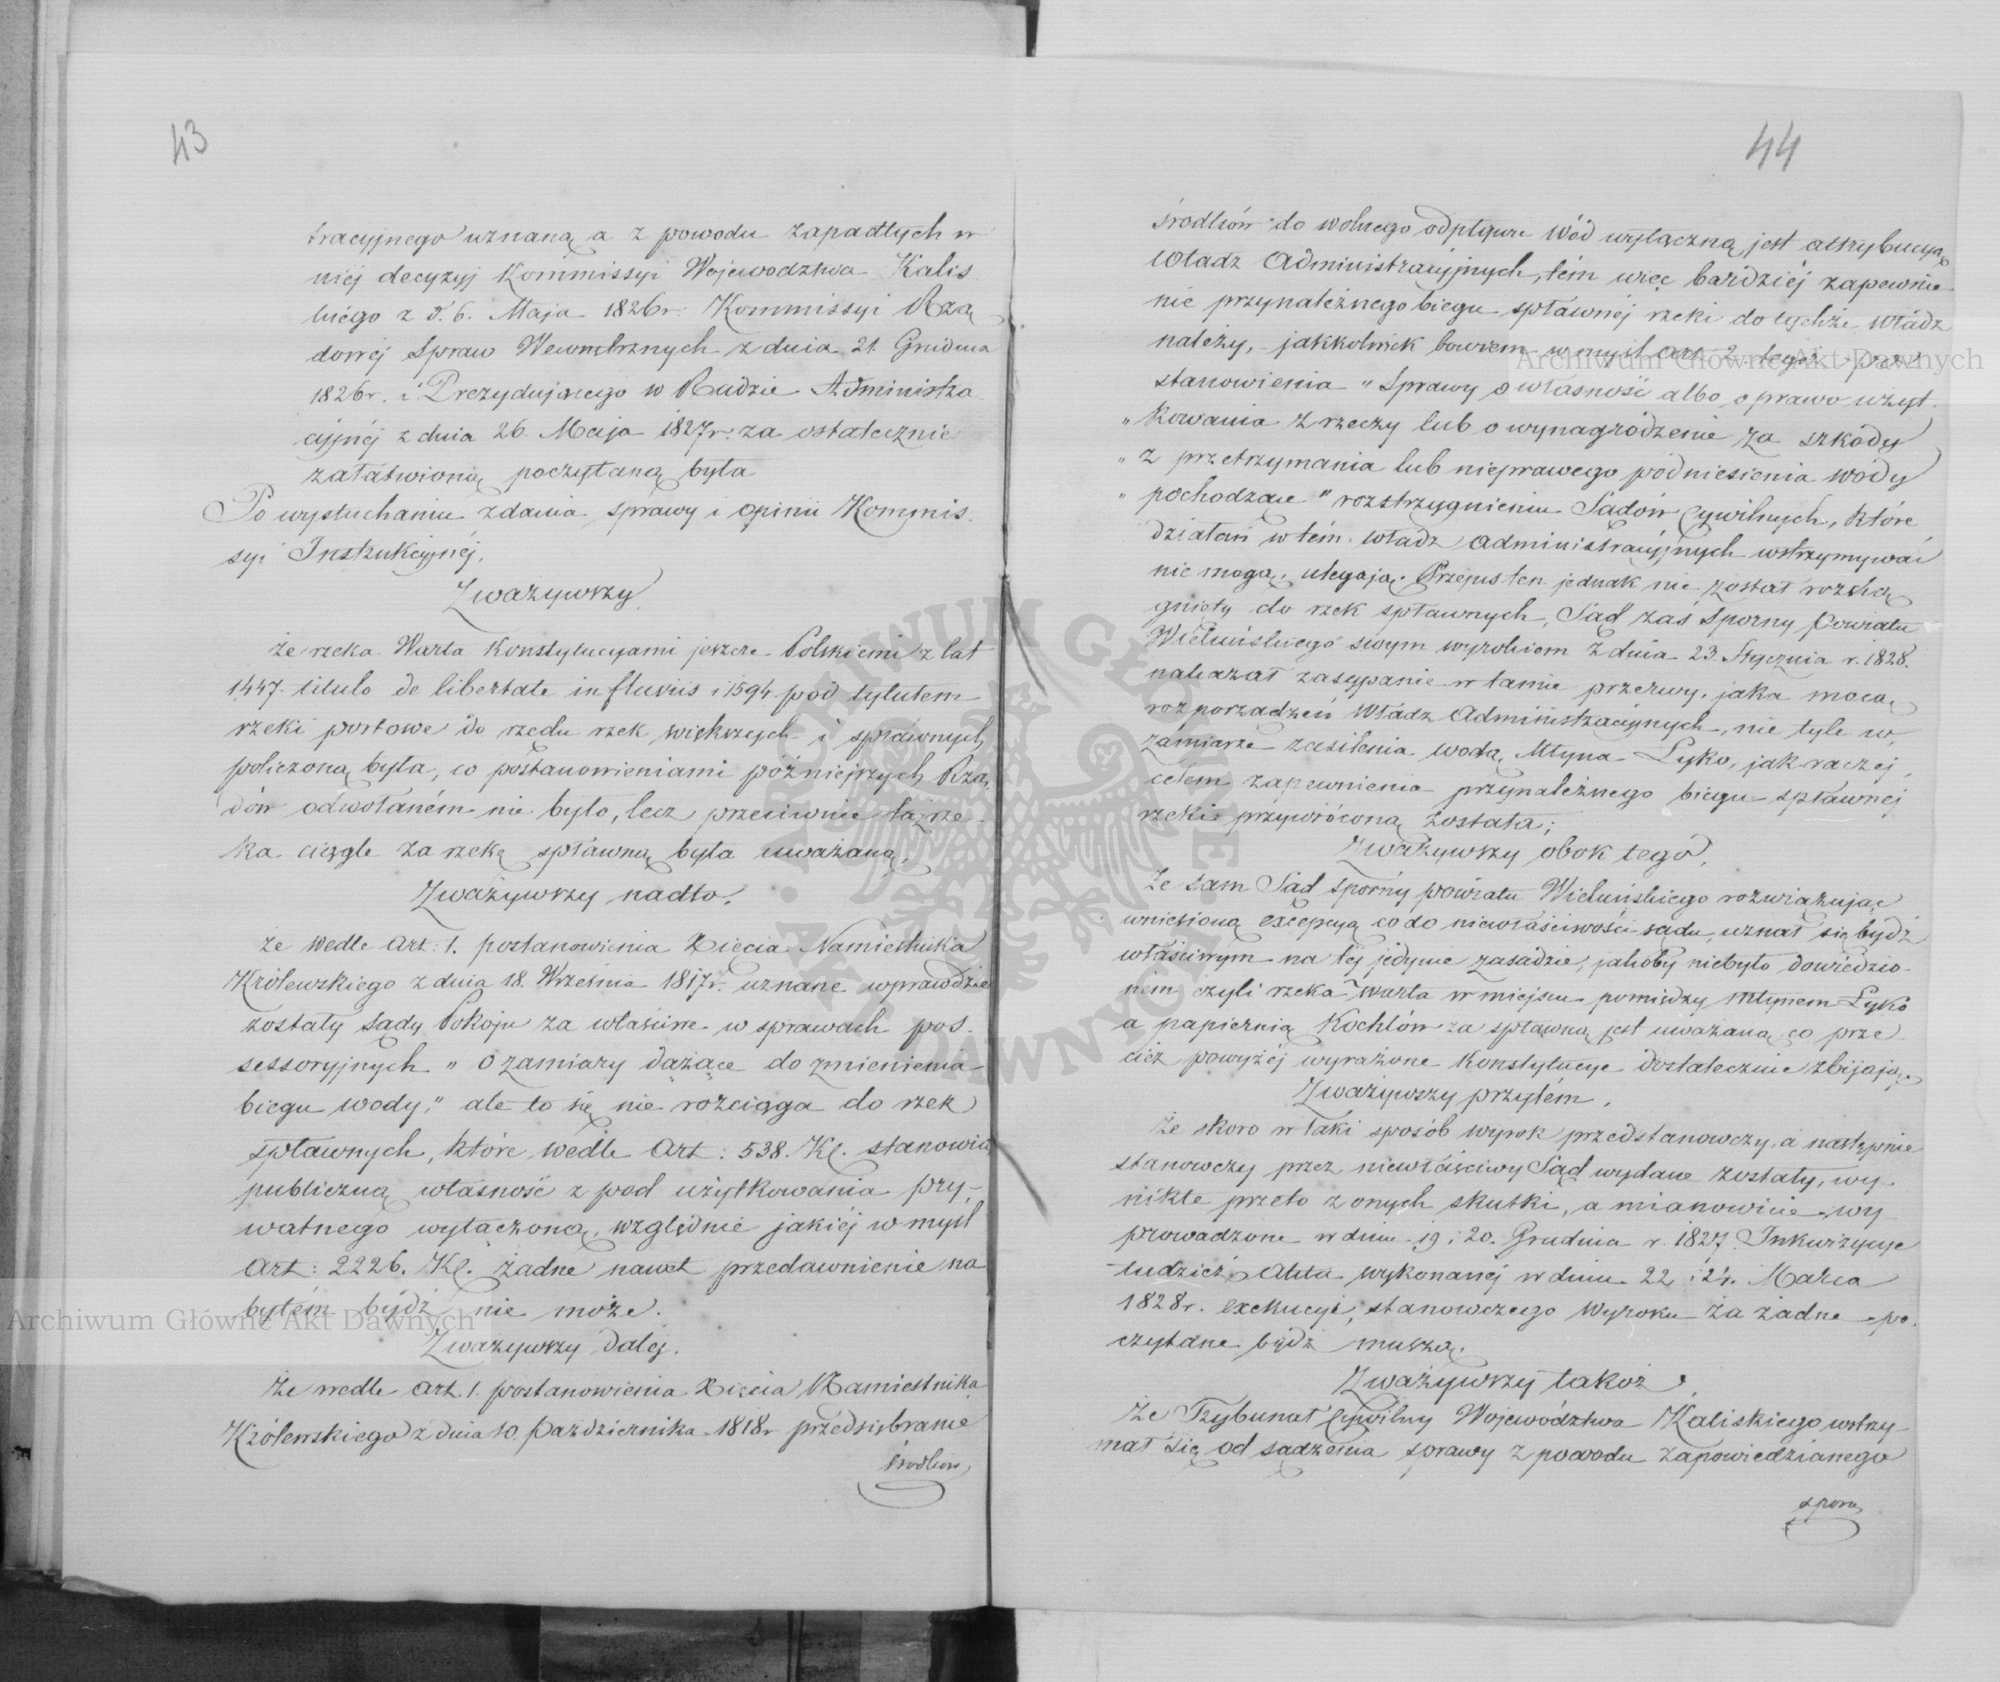 43
tracyjnego uznaną a z powodu zapadłych w
niéj decyzyj Kommissyi Województwa Kalis
kiégo z d. 6. Maja 1826r. Kommissyi Rzą
dowéj Spraw Wewnętrznych z dnia 21. Grudnia
1826r. i Prezydującego w Radzie Administra
cyjnéj z dnia 26 Maja 1827r. za ostatecznie
załatwioną poczytaną była
Po wysłuchaniu zdania sprawy i opinii Kommis.
syi Instrukcyjnéj.
Zważywszy
że rzeka Warta Konstytucyami jeszcze Polskiemi z lat
1447. titulo de libertate in fluviis i 1594 pod tytułem
rzeki portowe do rzędu rzek większych i spławnych
policzoną była, co postanowieniami późniejszych Rzą
dów odwołaném nie było, lecz przeciwnie taż rze
ka ciągle za rzekę spławną była uważaną,
Zważywszy nadto,
że wedle Art: 1. postanowienia Xięcia Namiestnika
Królewskiego z dnia 18. Września 1817r. uznane wprawdzie
zostały Sądy Pokoju za właściwe w sprawach pos-
sessoryjnych „ o zamiary dążące do zmienienia
biegu wody," ale to się nie rozciąga do rzek
spławnych, które wedle Art: 538. Kc. stanowią
publiczną własność z pod użytkowania pry-
watnego wyłączoną, względnie jakiéj w myśl
Art: 2226. Kc. żadne nawet przedawnienie na
bytém bydź nie może.
Zważywszy daléj.
że wedle Art. 1. postanowienia Xięcia Namiestnika
Królewskiego z dnia 10. Października 1818r przedsiębranie
środków
44
środków do wolnego odpływu wód wyłączną jest attrybucyą
Władz Administracyjnych, tém więc bardziéj zapewnie
nie przynależnego biegu spławnéj rzeki do tychże Władz
należy, jakkolwiek bowiem w myśl Art. 2. tegoż post
stanowienia „ Sprawy o własność albo o prawo użyt.
„ kowania z rzeczy lub o wynagrodzenie za szkody
„ z przetrzymania lub nieprawego podniesienia wody
„ pochodzące " rozstrzygnieniu Sądów Cywilnych, które
działań w tém Władz Administracyjnych wstrzymywać
nie mogą, ulegają. Przepis ten jednak nie został rozcią
gnięty do rzek spławnych, Sąd zaś Sporny Powiatu
Wieluńskiego swym wyrokiem z dnia 23. Stycznia r. 1828.
nakazał zasypanie w tamie przerwy, jaka mocą
rozporządzeń Władz Administracyjnych, nie tyle w
zamiarze zasilenia wodą Młyna Łyko, jak raczéj
celem zapewnienia przynależnego biegu spławnéj
rzeki przywróconą została;
Zważywszy obok tego,
że sam Sąd sporny powiatu Wieluńskiego rozwiązując
wniesioną excepcyą co do niewłaściwości sądu, uznał się bydź
właściwym na téj jedynie zasadzie, jakoby niebyło dowiedzio-
nem czyli rzeka Warta w miejscu pomiędzy Młynem Łyko
a papiernią Kochlów za spławną jest uważaną, co prze
cież powyżéj wyrażone Konstytucye dostatecznie zbijają.
Zważywszy przytém,
że skoro w taki sposób wyrok przedstanowczy, a następnie
stanowczy przez niewłaściwy Sąd wydane zostały, wy-
nikłe przeto z onych skutki, a mianowicie wy
prowadzone w dniu 19 i 20. Grudnia r. 1827 Inkwizycye
tudzież Akta wykonanéj w dniu 22 i 24. Marca
1828r. exekucyi, stanowczego Wyroku za żadne po
czytane bydź muszą.
Zważywszy także,
że Trybunał Cywilny Województwa Kaliskiego wstrzy-
mał się od sądzenia sprawy z powodu zapowiedzianego
sporu
Archiwum Główne Akt Dawnych
Archiwum Główne Akt Dawnych
ARCHIWUM GŁÓWNE AKT DAWNYCH